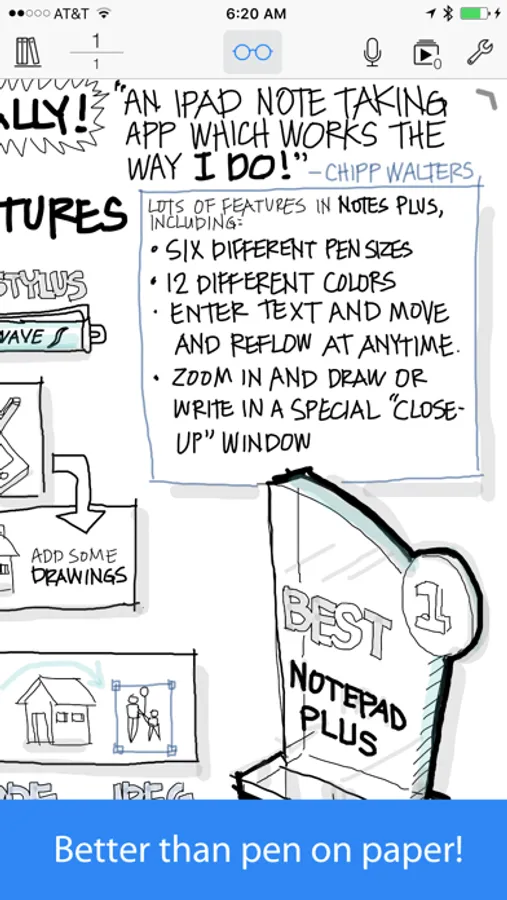 AT&T 6:20 AM
1
1
0
ALLY!
"AN IPAD NOTE TAKING
APP WHICH WORKS THE
WAY I DO!" -CHIPP WALTERS
TURES
LOTS OF FEATURES IN NOTES PLUS,
INCLUDING:
• SIX DIFFERENT PEN SIZES
• 12 DIFFERENT COLORS
• ENTER TEXT AND MOVE
AND REFLOW AT ANYTIME.
• ZOOM IN AND DRAW OR
WRITE IN A SPECIAL "CLOSE-
UP" WINDOW
STYLUS
WAVE
ADD SOME
DRAWINGS
1
BEST
NOTEPAD
PLUS
JPEG
Better than pen on paper!